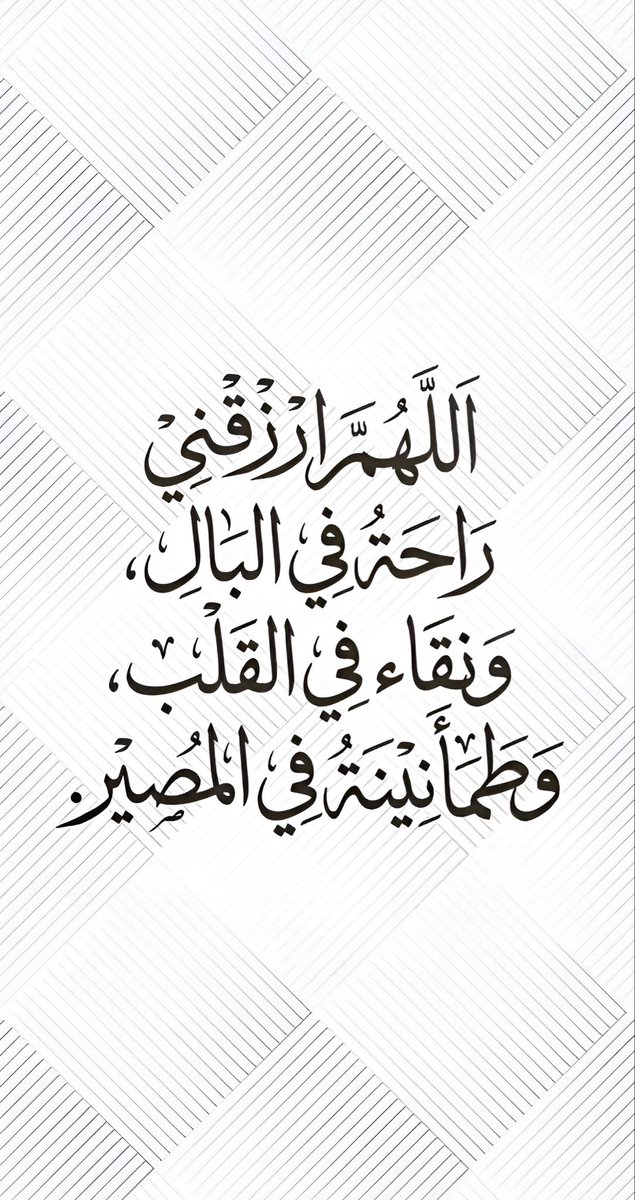 اَللَّهُمَّ ارْزُقْنِيْ
رَاحَةُ فِي البَالِ،
وَنَقَاء فِي القَلْب،
وَطَمَأَنِيْنَةُ فِي المُصِيْر.